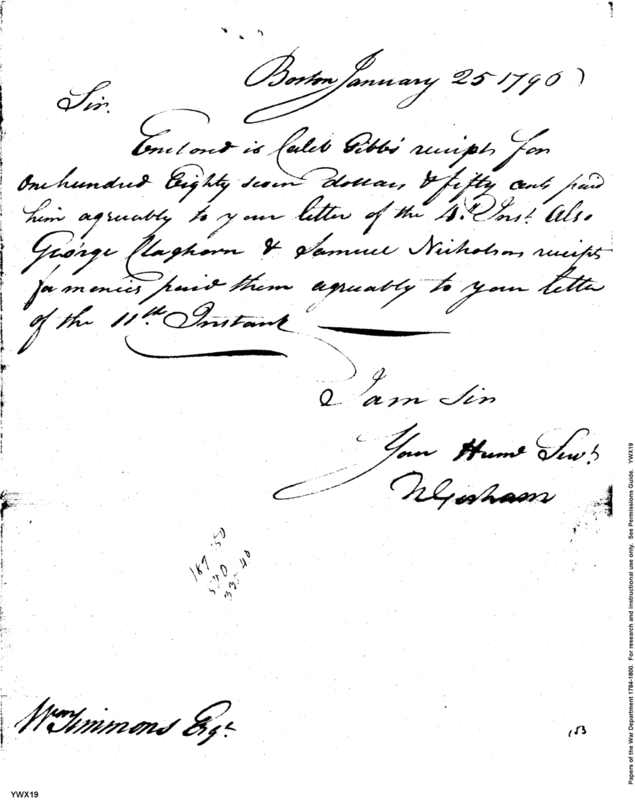 Boston January 25 1796
Sir.
Enclosed is Caleb Gibbs receipts for
One hundred Eighty seven dollars & fifty cents paid
him agreeably to your letter of the 4th Inst. Also
George Claghorn & Samuel Nicholson receipts
for monies paid them agreeably to your letter
of the 11th Instant
I am Sir
Your Humε Servt
N Gorham
187 50
520
335 40
Wm Simmons Esqr
153
YWX19
Papers of the War Department 1784-1800. For research and instructional use only. See Permissions Guide. YWX19